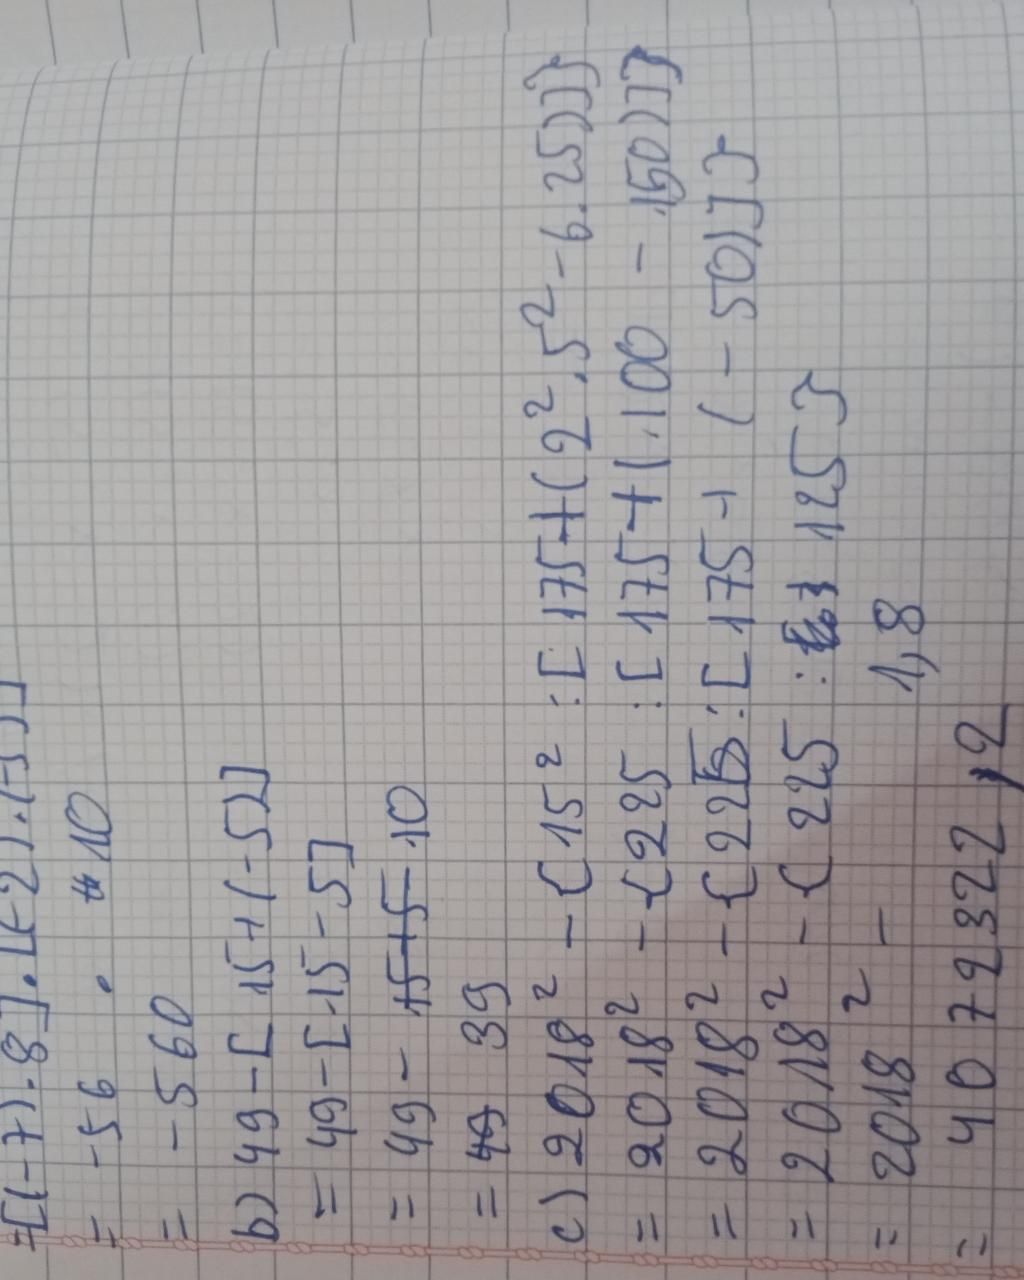 =[(-7).8].[(-2).(-5)]
= -56 . 10
= -560
b) 49-[15+(-5)]
= 49-[15-5]
= 49 - 10
= 39
c) 2018² - {15² : [175+(2².5²-6.25)]}
= 2018² - {225 : [175+(.100 - 150)]}
= 2018² - {225 : [175+(-50)]}
= 2018² - {225 : 125}
= 2018² - 1,8
= 4079 2322,2